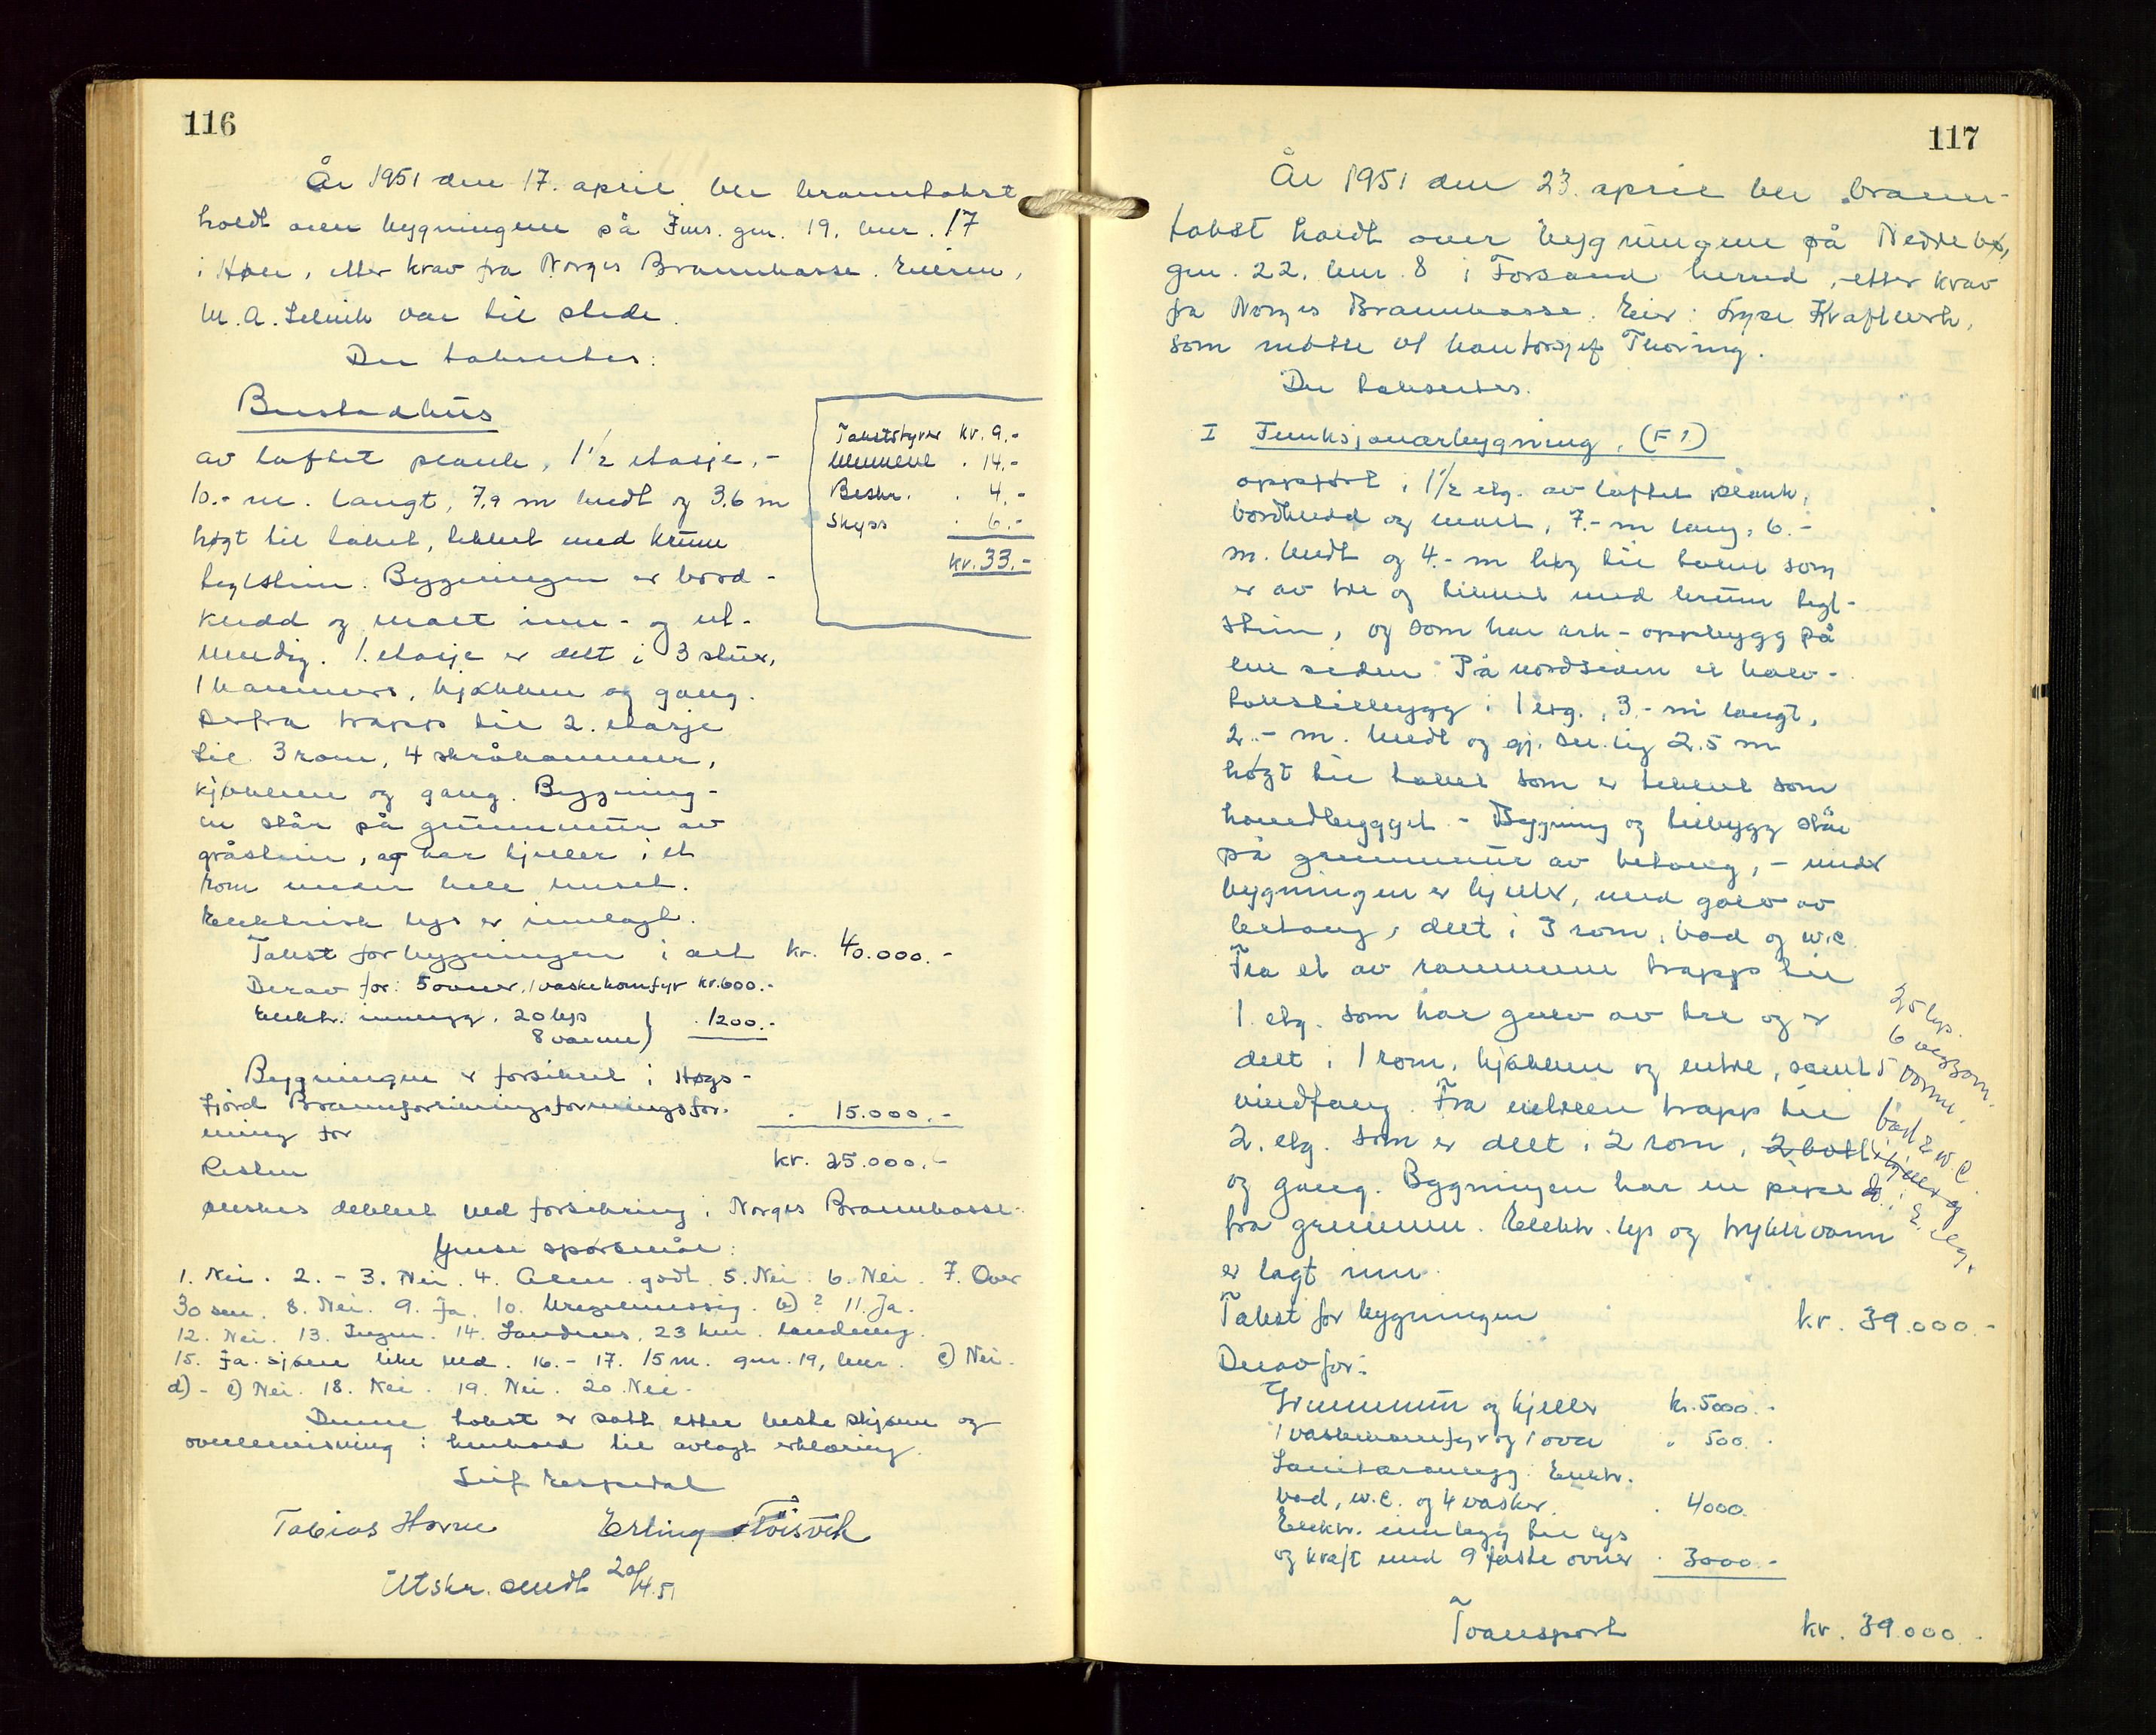 116
År 1951 den 17. april ble branntakst
holdt over bygningene på Furs. gnr. 19, bnr. 17
i Høle, etter krav fra Norges Brannkasse. Eieren,
M. A. Selvik var til stede.
Der taksertes:
Bustadhus
av laftet plank, 1½ etasje, -
10.- m. langt, 7,9 m bredt og 3,6 m
høgt til taket, tekket med krum
teglstein. Bygningen er bord-
kledd og malt inn- og ut-
vendig. 1. etasje er delt i 3 stuer,
1 kammers, kjøkken og gang.
Derfra trapp til 2. etasje
til 3 rom, 4 skråkammer,
kjøkken og gang. Bygning-
en står på grunnmur av
gråstein, og har kjeller i et
rom under hele huset.
Elektrisk lys er innlagt.
Takst for bygningen i alt kr. 40.000.-
Derav for: 5 ovner, 1 vaskekomfyr kr. 600.-
Elektr. innlegg. 20 lys
8 varme) . 1200.-
Bygningen er forsikret i Høgs-
fjord Brannforsikringsforningsfor-
ening for . 15.000.-
Resten kr. 25.000.-
ønskes dekket ved forsikring i Norges Brannkasse.
Ymse spørsmål:
1. Nei. 2. - 3. Nei. 4. Alm. godt. 5. Nei. 6. Nei. 7. Over
30 cm. 8. Nei. 9. Ja. 10. Uregelmessig. b) ? 11. Ja.
12. Nei. 13. Ingen. 14. Sandnes, 23 km. landeveg.
15. Ja. sjøen like ved. 16. - 17. 15 m. gnr. 19, bnr. c) Nei.
d) - e) Nei. 18. Nei. 19. Nei. 20. Nei.
Denne takst er satt etter beste skjønn og
overbevisning i henhold til avlagt erklæring.
Leif Espedal
Tobias Havne Erling
Utskr. sendt 20/4.51
Takststyrer kr. 9.-
Menn . 14.-
Beskr. . 4.-
Skyss . 6.-
kr. 33.-
117
År 1951 den 23. april ble brann-
takst holdt over bygningene på Nedrebø,
gnr. 22, bnr. 8 i Forsand herred, etter krav
fra Norges Brannkasse. Eier: Lyse Kraftverk,
som møtte v/ kontorsjef Thoring.
Der taksertes.
I Funksjonærbygning. (F 1)
oppført i 1½ etg. av laftet plank,
bordkledd og malt, 7.- m lang, 6.-
m. bredt og 4.- m høg til taket som
er av tre og tekket med krum tegl-
stein, og som har ark-oppbygg på
ene siden. På nordsiden er halv-
takstilbygg i 1 etg., 3.- m langt,
2.- m. bredt og gj. sn.lig 2.5 m
høgt til taket som er tekket som
hovedbygget. - Bygning og tilbygg står
på grunnmur av betong, - under
bygningen er kjeller, med golv av
betong, delt i 3 rom, bad og w.c.
Fra et av rommene trapp til
1. etg. som har golv av tre og er
delt i 1 rom, kjøkken og entre, samt
vindfang. Fra entreen trapp til
2. etg. som er delt i 2 rom,
og gang. Bygningen har en pipe
fra grunnen. Elektr. lys og trykkvann
er lagt inn.
25 lys.
5 varme.
bad & w.c.
i kjeller og
do. i 2. etg.
Takst for bygningen kr. 39.000.-
Derav for:
Grunnmur og kjeller kr. 5000.-
1 vaskekomfyr og 1 ovn " 500.-
Sanitæranlegg. Elektr.
bad, w.c. og 4 vasker. . 4000.
Elektr. innlegg til lys
og kraft med 9 faste ovner . 3000.-
Transport kr. 39.000.-